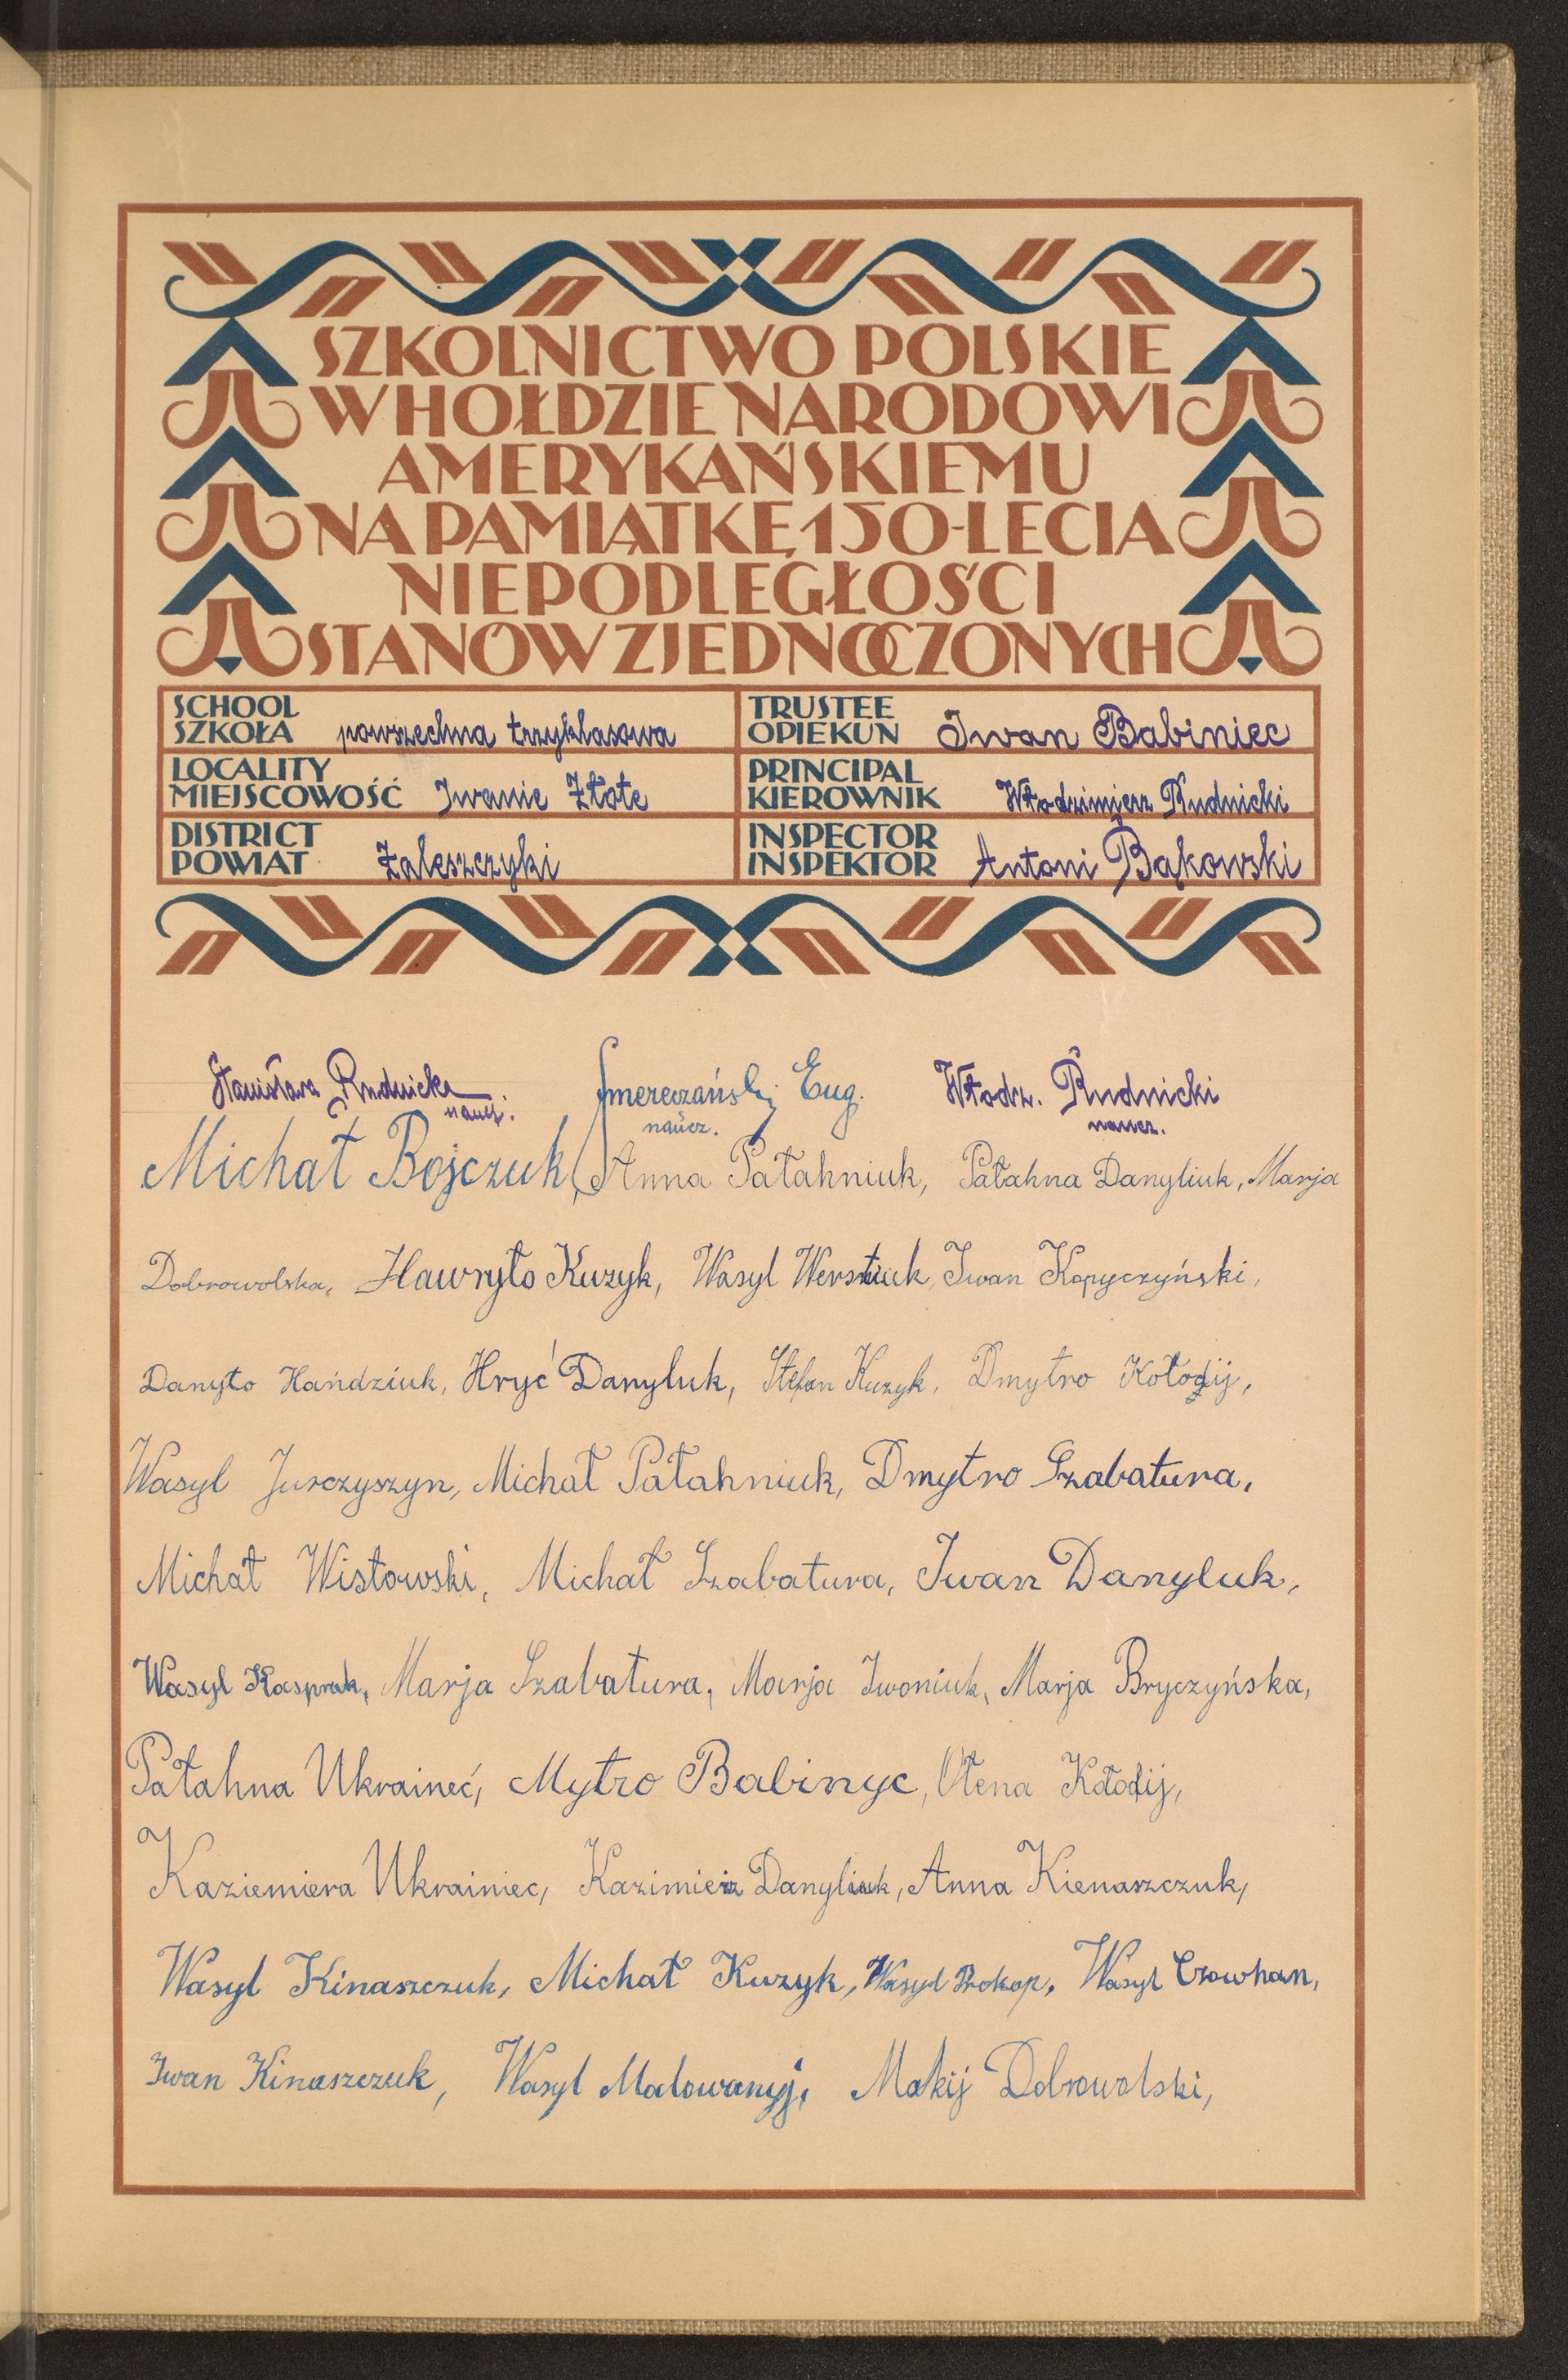 SZKOLNICTWO POLSKIE
W HOŁDZIE NARODOWI
AMERYKAŃSKIEMU
NA PAMIĄTKĘ 150-LECIA
NIEPODLEGŁOŚCI
STANÓW ZJEDNOCZONYCH
SCHOOL
SZKOŁA powszechna trzyklasowa
TRUSTEE
OPIEKUN Iwan Babiniec
LOCALITY
MIEJSCOWOŚĆ Iwanie Złote
PRINCIPAL
KIEROWNIK Włodzimierz Rudnicki
DISTRICT
POWIAT Zaleszczyki
INSPECTOR
INSPEKTOR Antoni Bąkowski
Stanisława Rudnicka Smereczańskij Eug. Włodz. Rudnicki
naucz. naucz. naucz.
Michał Bojczuk, Anna Pałahniuk, Pałahna Danyliuk, Marja
Dobrowolska, Hawryło Kuzyk, Wasyl Werstiuk, Iwan Kopyczyński,
Danyło Hańdziuk, Hryć Danyluk, Stefan Kuzyk, Dmytro Kołodij,
Wasyl Jurczyszyn, Michał Pałahniuk, Dmytro Szabatura,
Michał Wisłowski, Michał Szabatura, Iwan Danyluk,
Wasyl Kasprak, Marja Szabatura, Marja Iwoniuk, Marja Bryczyńska,
Pałahna Ukraineć, Mytro Babinyc, Ołena Kołodij,
Kaziemiera Ukrainiec, Kazimierz Danyliuk, Anna Kienaszczuk,
Wasyl Kinaszczuk, Michał Kuzyk, Wasyl Prokop, Wasyl Czowhan,
Iwan Kinaszczuk, Wasyl Malowanyj, Makij Dobrowolski,